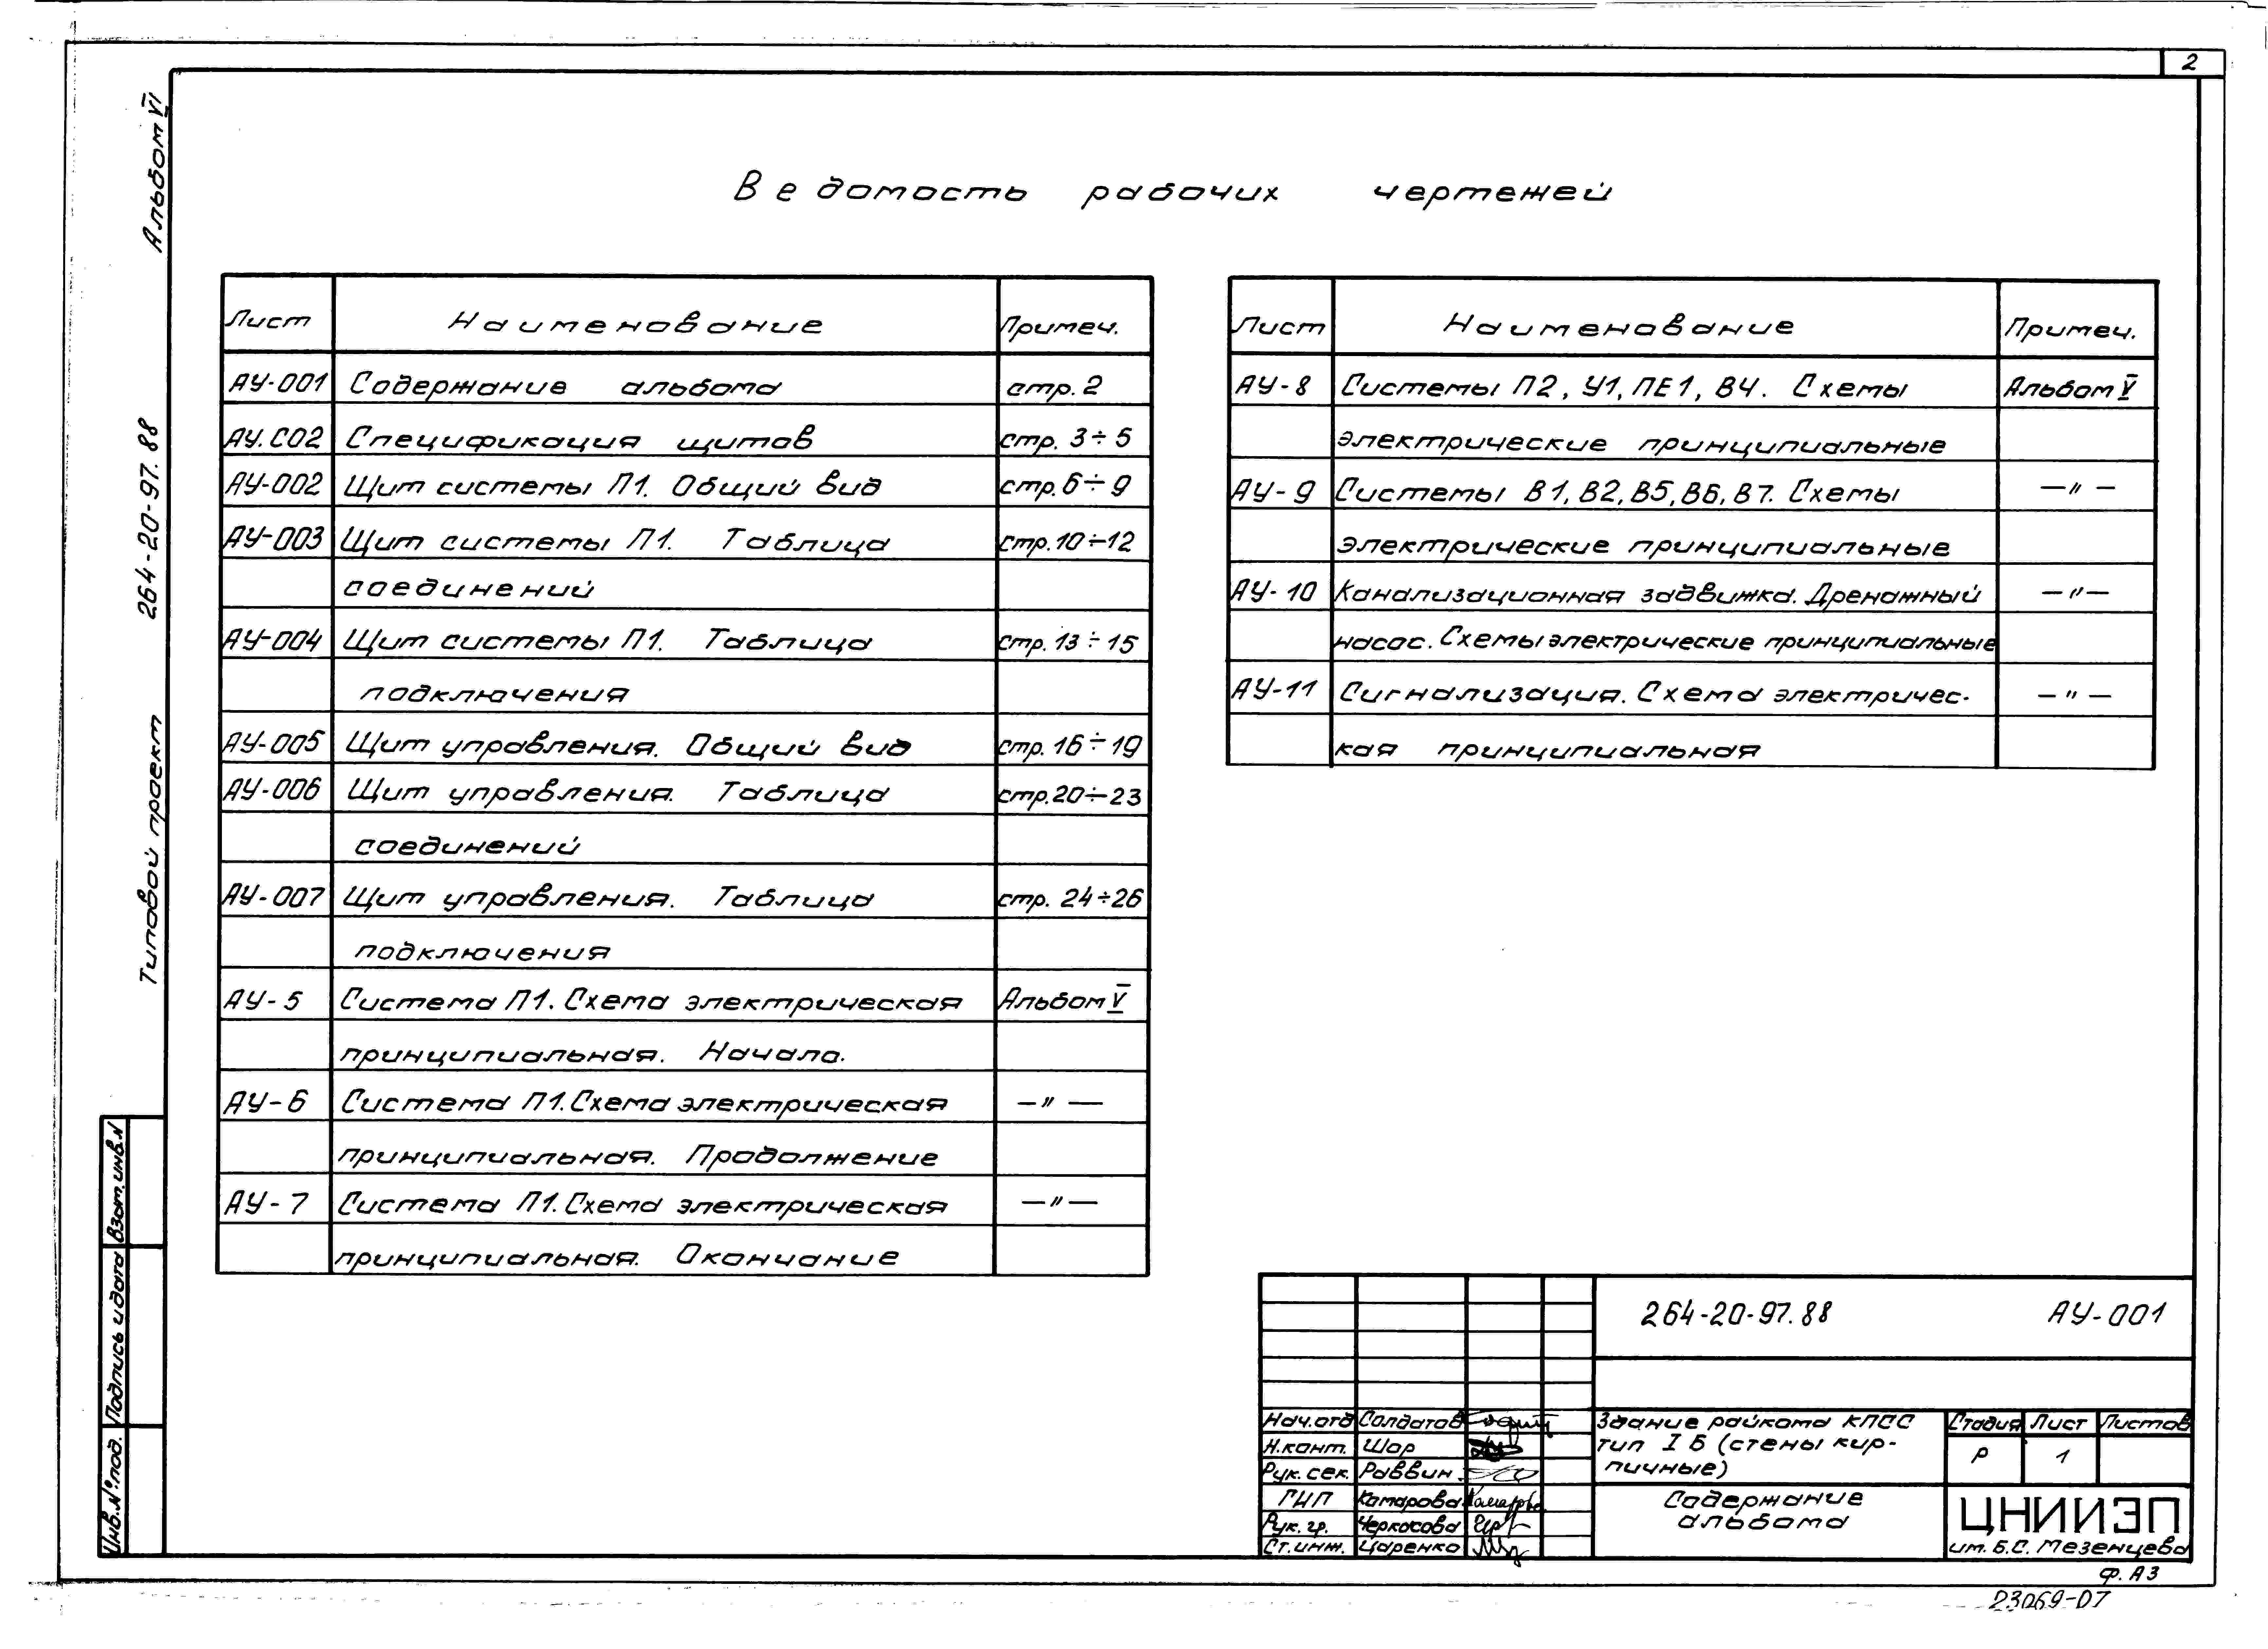 2
Альбом VI
Типовой проект 264-20-97.88
Ведомость рабочих чертежей
Лист Наименование Примеч.
АУ-001 Содержание альбома стр. 2
АУ.СО2 Спецификация щитов стр. 3÷5
АУ-002 Щит системы П1. Общий вид стр. 6÷9
АУ-003 Щит системы П1. Таблица стр. 10÷12
соединений
АУ-004 Щит системы П1. Таблица стр. 13÷15
подключения
АУ-005 Щит управления. Общий вид стр. 16÷19
АУ-006 Щит управления. Таблица стр. 20÷23
соединений
АУ-007 Щит управления. Таблица стр. 24÷26
подключения
АУ-5 Система П1. Схема электрическая Альбом V
принципиальная. Начало.
АУ-6 Система П1. Схема электрическая —"—
принципиальная. Продолжение
АУ-7 Система П1. Схема электрическая —"—
принципиальная. Окончание
Лист Наименование Примеч.
АУ-8 Системы П2, У1, ПЕ1, В4. Схемы Альбом V
электрические принципиальные
АУ-9 Системы В1, В2, В5, В6, В7. Схемы —"—
электрические принципиальные
АУ-10 Канализационная задвижка. Дренажный —"—
насос. Схемы электрические принципиальные
АУ-11 Сигнализация. Схема электричес- —"—
кая принципиальная
Инв.№ под. Подпись и дата Взам.инв.N
264-20-97.88 АУ-001
Нач.отд Солдатов
Н.конт. Шор
Рук. сек. Раввин
ГИП Комарова
Рук. гр. Черкасова
Ст. инж. Царенко
Здание райкома КПСС
тип I Б (стены кир-
пичные)
Стадия Лист Листов
Р 1
Содержание
альбома
ЦНИИЭП
им. Б.С. Мезенцева
ф. А3
23069-07